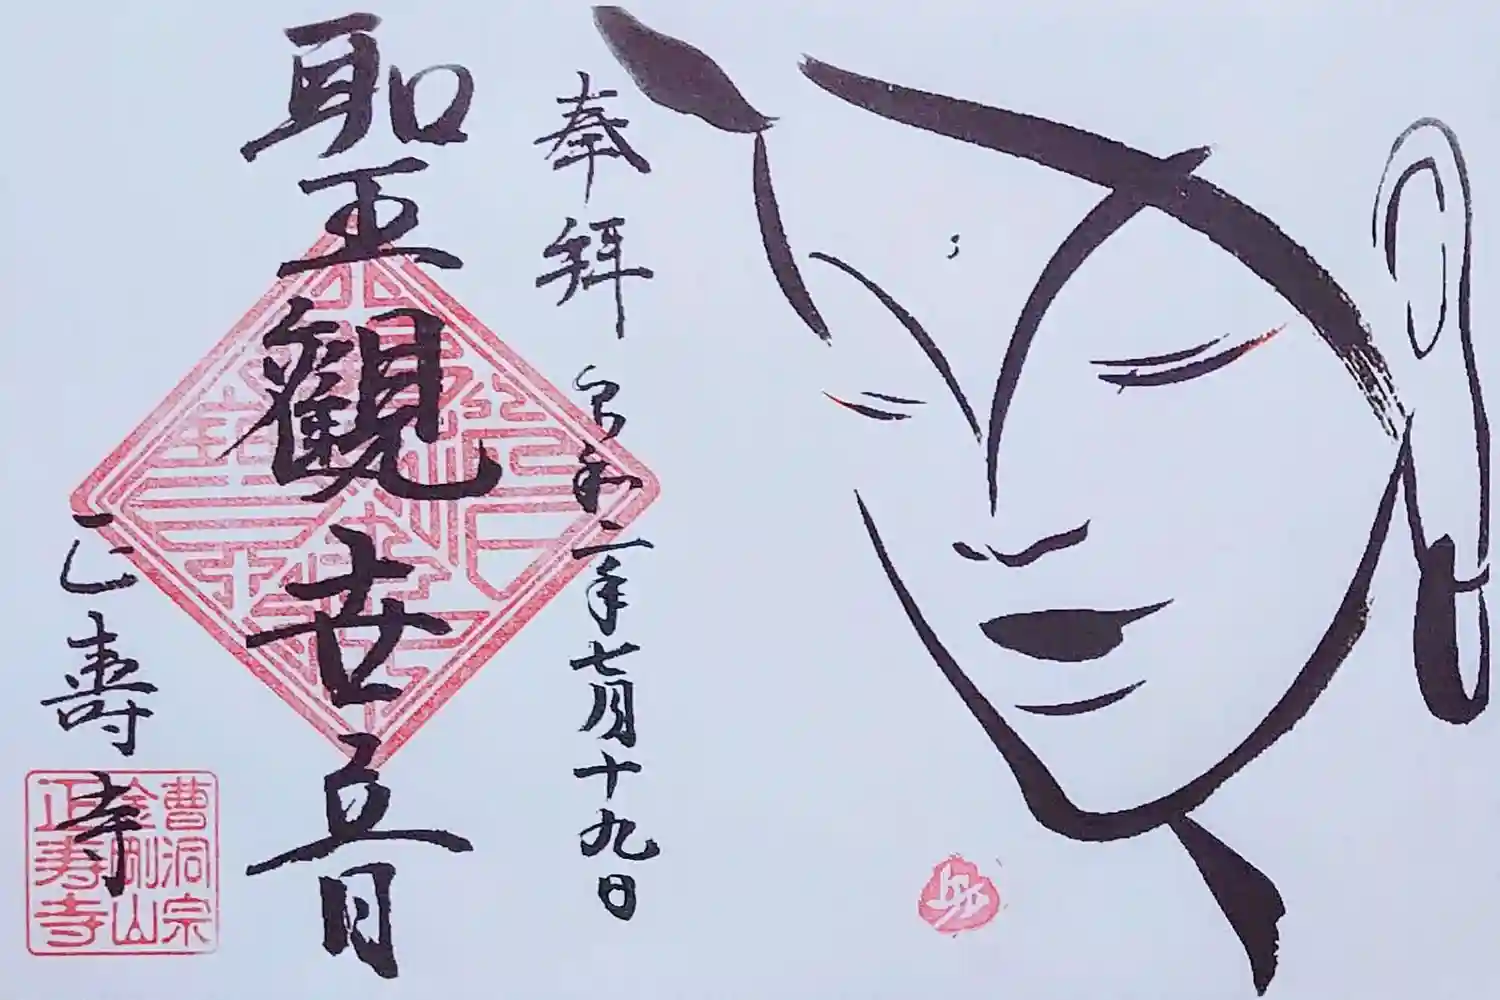 奉拜
令和二年七月十九日
聖觀世音
正壽寺
曹洞宗
金剛山
正寿寺